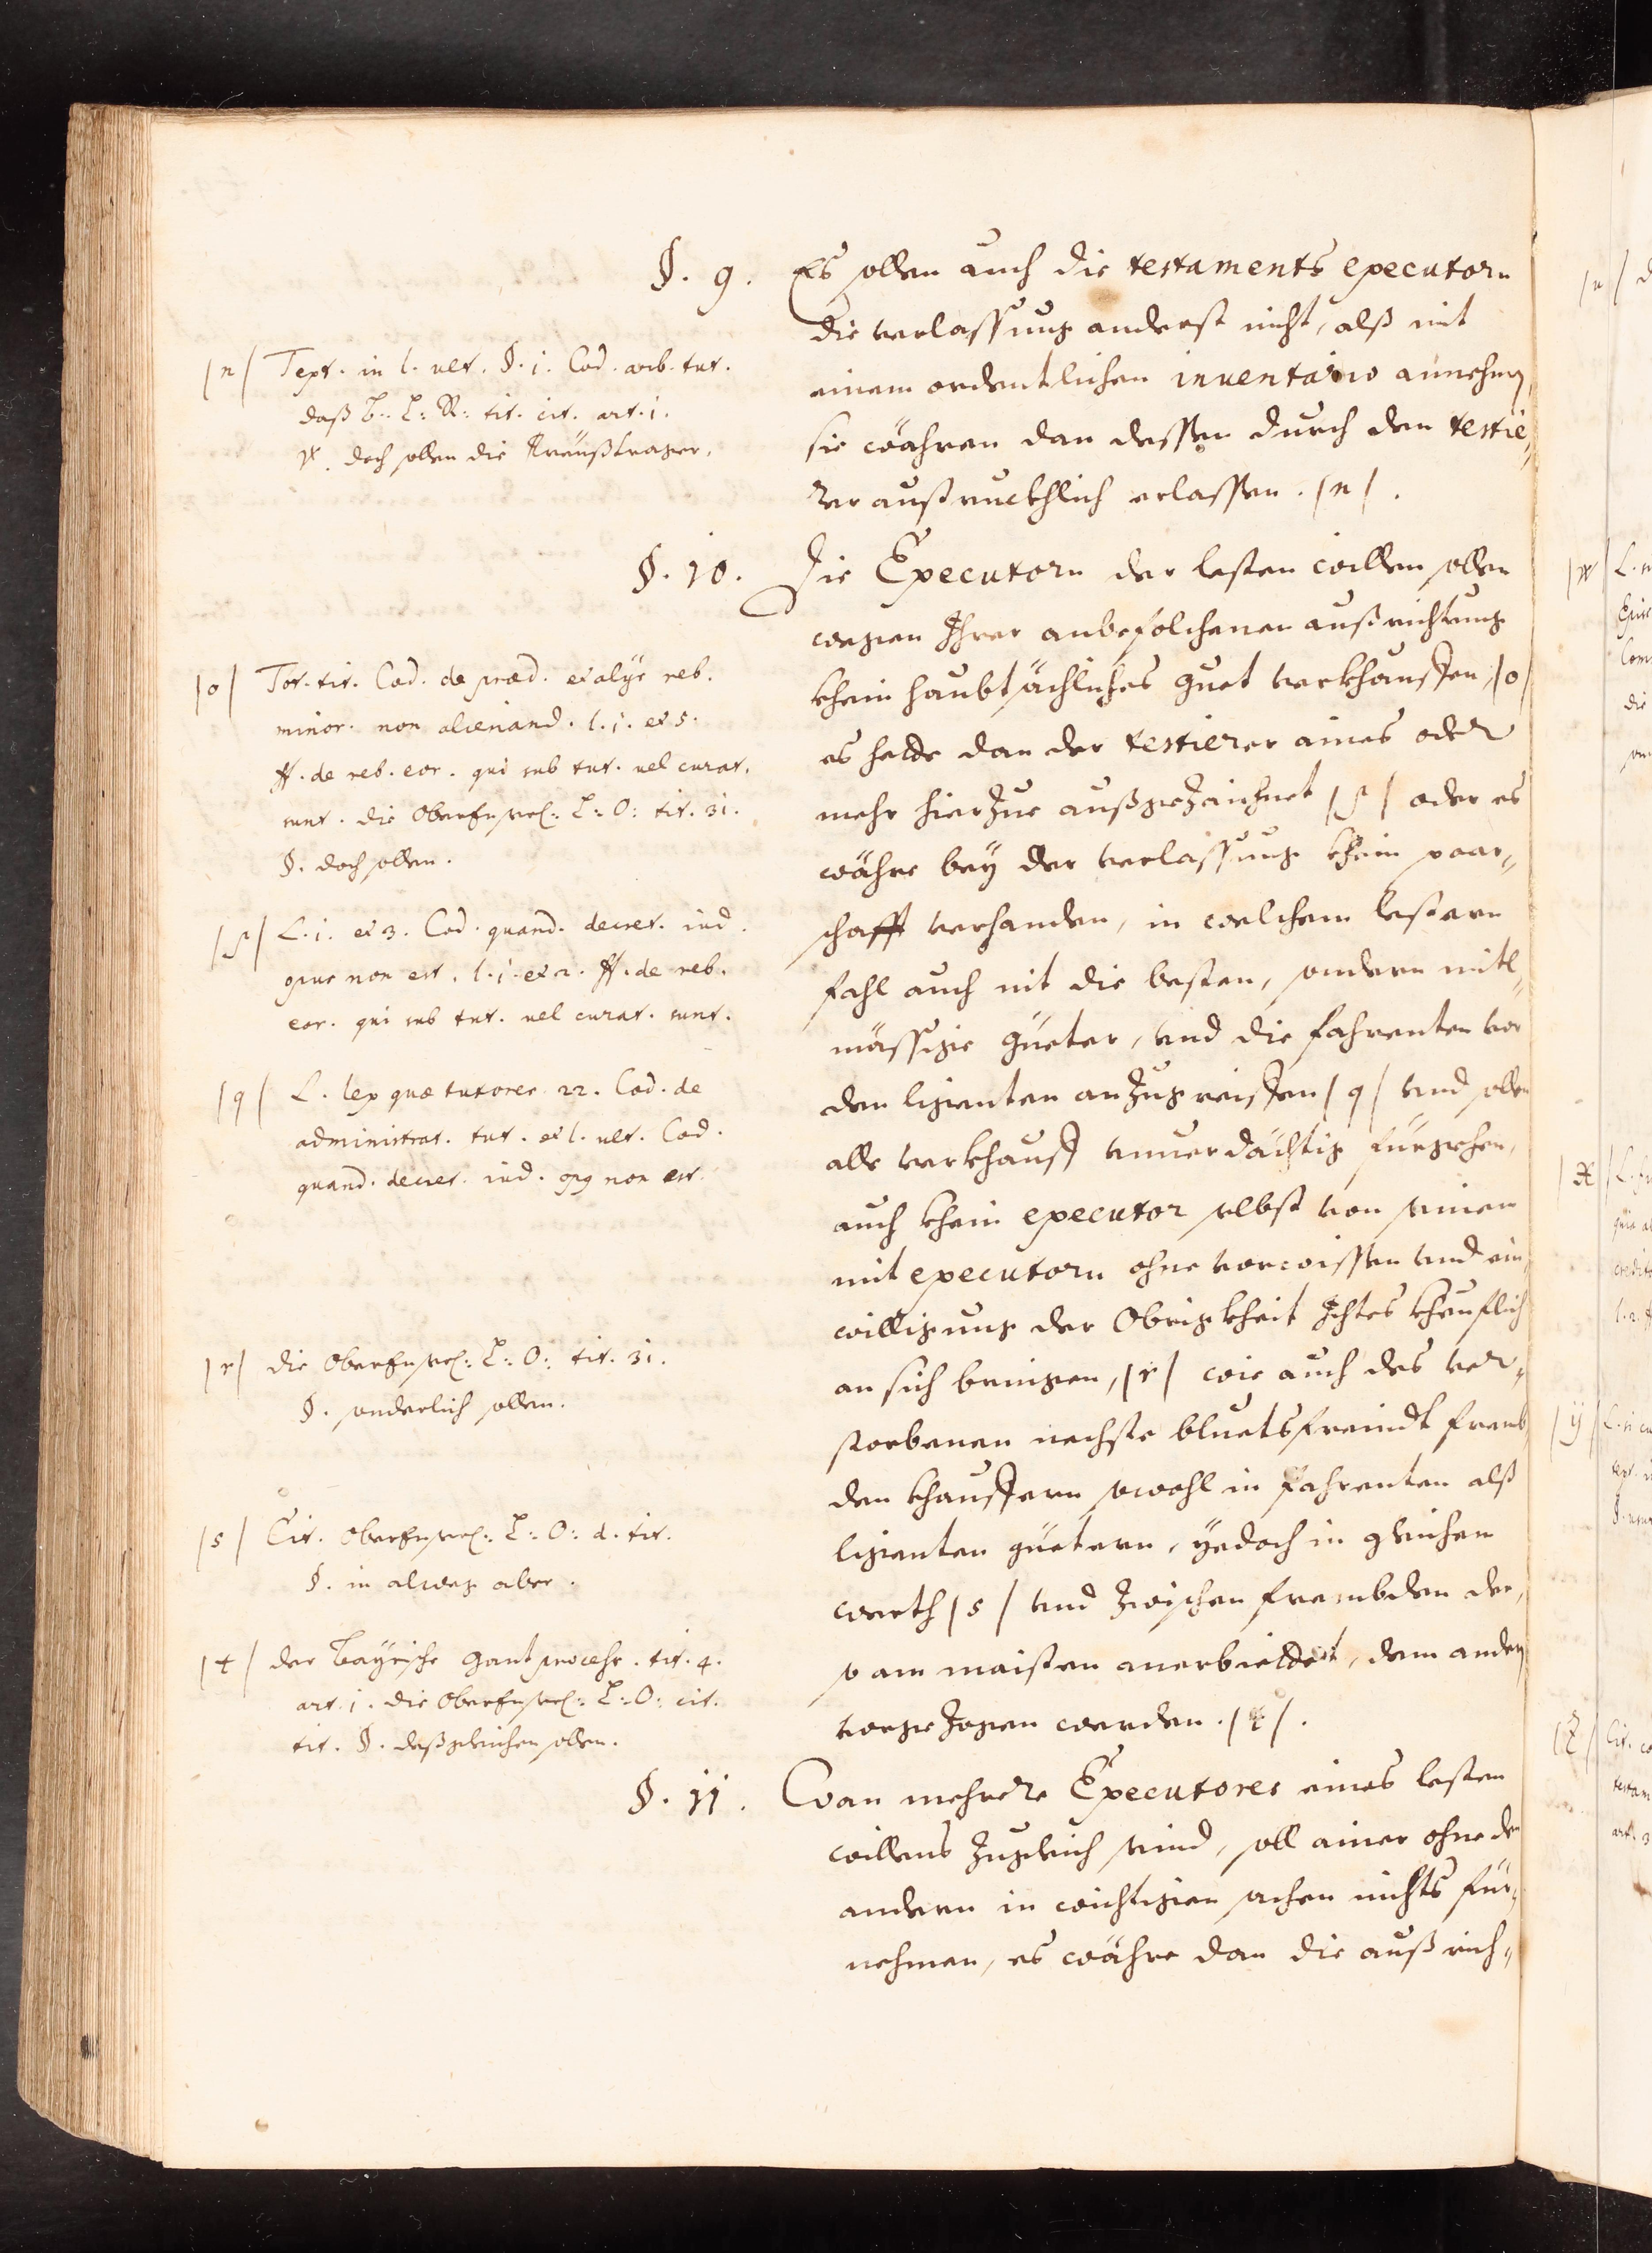 §. 9.
Es sollen auch die testaments executorn
die verlassung anderst nicht, alß mit
einem ordentlichen inventario annehmen,
sie währen dan dessen durch den testie„
rer außtruckhlich erlassen. /n/.
/n/ Text. in l. ult. §. i. Cod. arb. tut.
daß B: L: R: tit. cit. art. i.
doch sollen die
§. 10.
Die Executorn der lesten willen sollen
wegen Ihrer anbefolchenen außrichtung
khein haubtsächliches guet verkhauffen, /o/
es hette dan der testierer aines oder
mehr hierzue außgezaichnet /p/ oder es
währe bey der verlassung khein paar„
schafft verhanden, in welchem lestern
fahl auch nit die besten, sondern mitl„
mässige güeter, und die fahrenten vor
den ligenten anzugreiffen /q/ und sollen
alle verkhauff unverdächtig fürgehen,
auch khein executor selbst von seinen
mit executorn ohne vorwissen und ein„
willigung der Obrigkheit Ichtes kheuflich
an sich bringen, /r/ wie auch des ver„
storbenen nechste bluetsfreindt fremb„
den khauffern sowohl in fahrenten alß
ligenten güetern, yedoch in gleichen
werth /s/ und zwischen frembden der,
so am maisten anerbiettet, dem andern
vorgezogen werden. /t/.
/o/ Tot. tit. Cod. de præd. et alijs reb.
minor. non alienand. l. i. et 5.
ff. de reb. eor. qui sub tut. vel curat.
sunt. die L: O: tit. 31.
§. doch sollen.
/p/ L. i. et 3. Cod. quand. decret. iud.
opus non est. l. i. et 2. ff. de reb.
eor. qui sub tut. vel curat. sunt.
/q/ L. lex quæ tutores 22. Cod. de
administrat. tut. et l. ult. Cod.
quand. decret. iud. opus non est.
/r/ die L: O: tit. 31.
§. sonderlich sollen.
/s/ Cit. L: O: d. tit.
§. in alweg aber.
/t/ der Bayrische Gantprocess. tit. 4.
art. i. die L: O: cit.
tit. §. deßgleichen sollen.
§. 11.
Wan mehrere Executores eines lesten
willens zugleich seind, soll ainer ohne den
andern in wichtigen sachen nichts für„
nehmen, es währe dan die außrich„